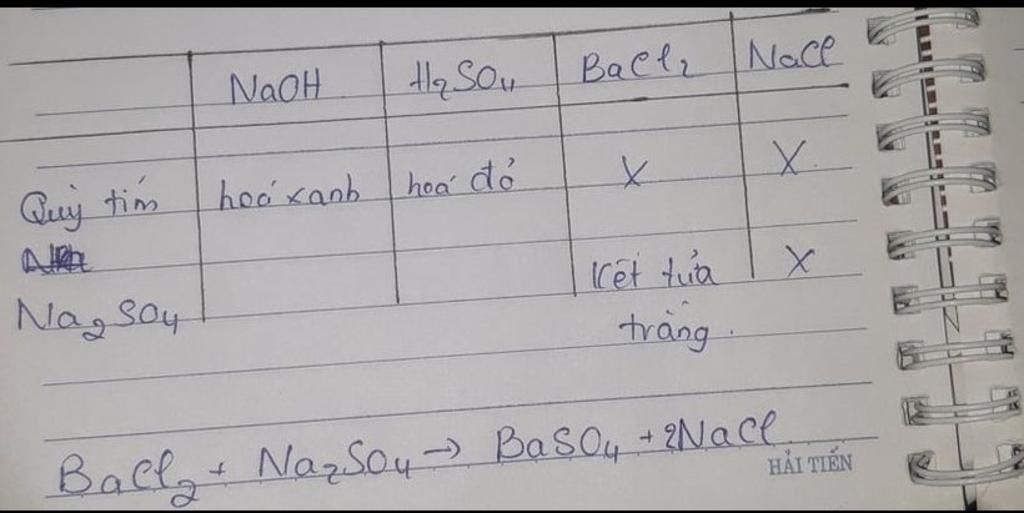 NaOH H2SO4 BaCl2 NaCl
Quỳ tím hoá xanh hoá đỏ X X
Na2SO4 Kết tủa X
trắng.
BaCl2 + Na2SO4 → BaSO4 + 2NaCl
HẢI TIẾN